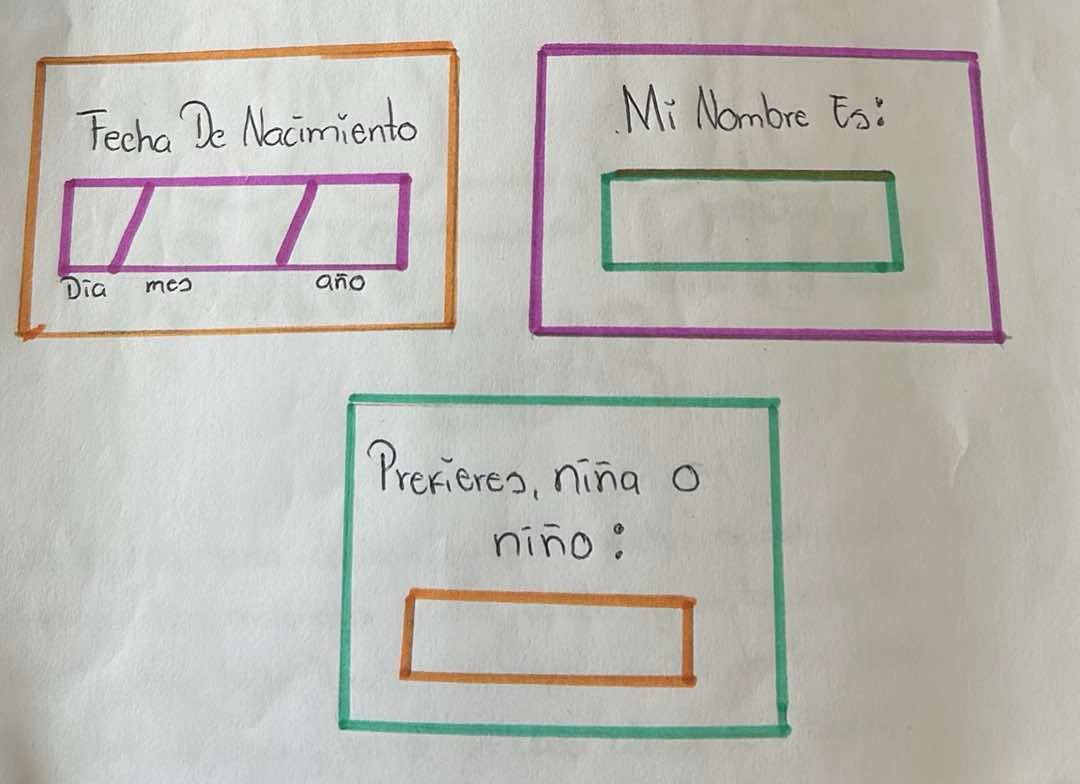 Fecha De Nacimiento
Día mes año
Mi Nombre Es:
Prefieres, niña o
niño: